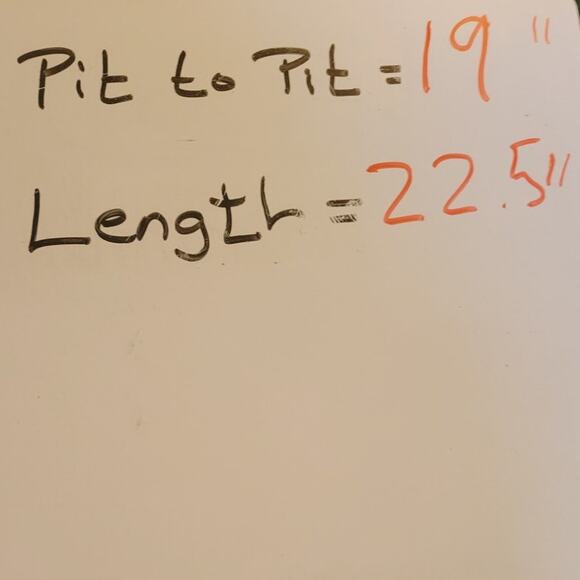 Pit to Pit = 19"
Length = 22.5"